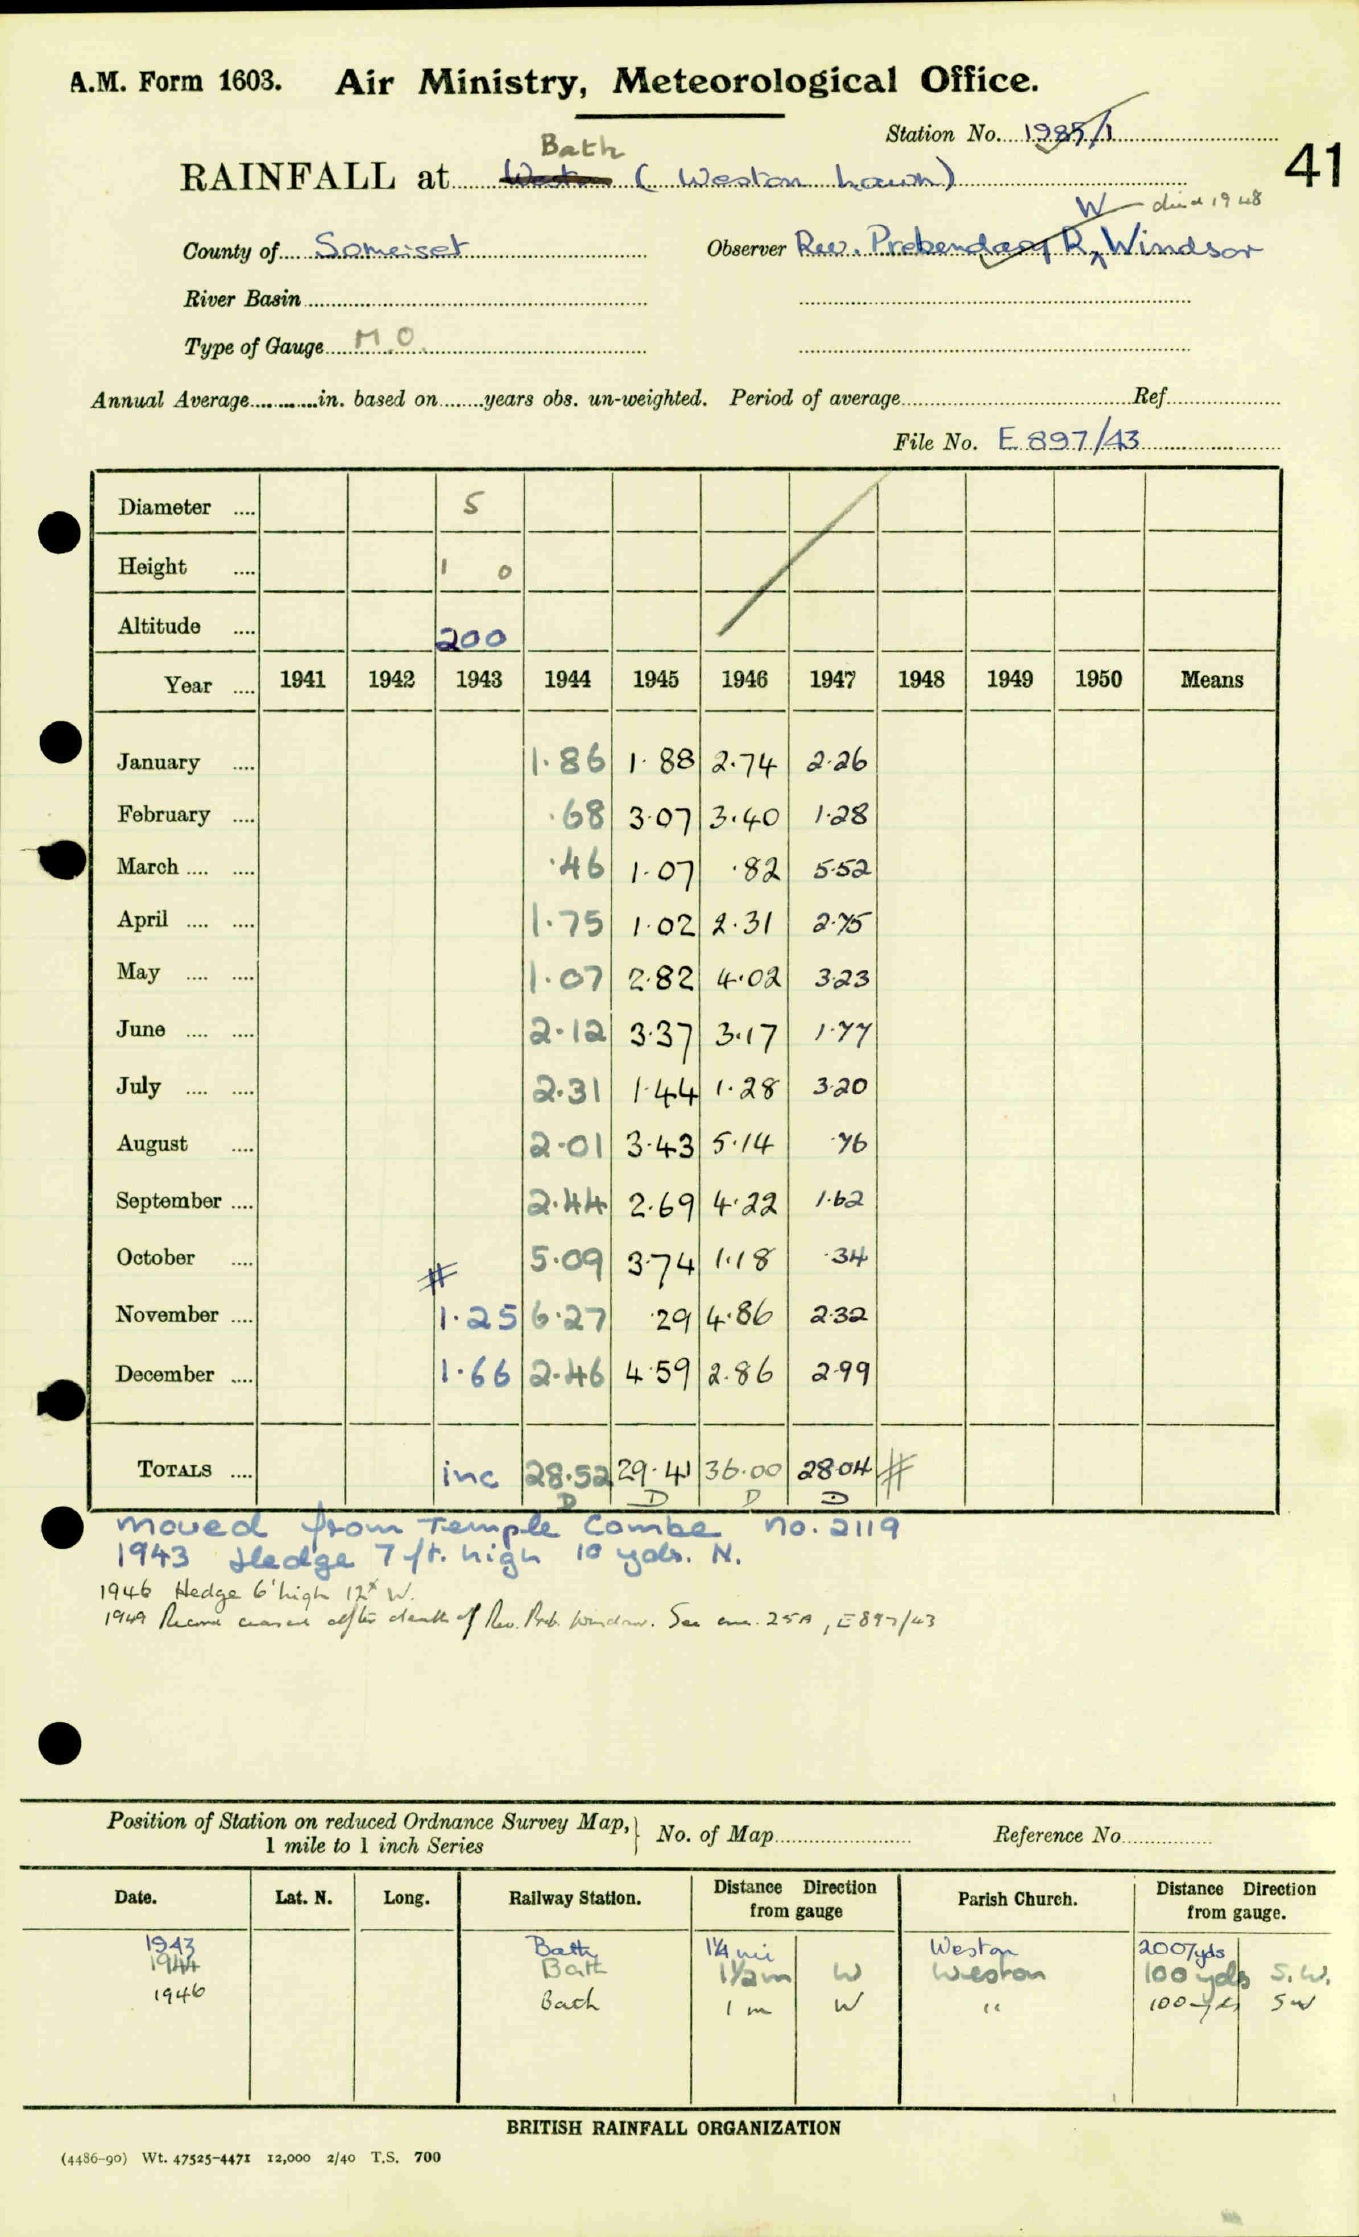 A.M. Form 1603. Air Ministry, Meteorological Office.
Station No. 1985/1
41
Bath
RAINFALL at Weston (Weston Lawn)
W died 1948
County of Somerset Observer Rev. Prebendary R. Windsor
River Basin
Type of Gauge M.O.
Annual Average in. based on years obs. un-weighted. Period of average Ref
File No. E 897/43
Diameter 5
Height 1 0
Altitude 200
Year 1941 1942 1943 1944 1945 1946 1947 1948 1949 1950 Means
January 1.86 1.88 2.74 2.26
February .68 3.07 3.40 1.28
March .46 1.07 .82 5.52
April 1.75 1.02 2.31 2.75
May 1.07 2.82 4.02 3.23
June 2.12 3.37 3.17 1.77
July 2.31 1.44 1.28 3.20
August 2.01 3.43 5.14 .76
September 2.44 2.69 4.22 1.62
October 5.09 3.74 1.18 .34
#
November 1.25 6.27 .29 4.86 2.32
December 1.66 2.46 4.59 2.86 2.99
TOTALS inc 28.52 29.41 36.00 28.04 #
D D D D
Moved from Temple Combe No. 2119
1943 Hedge 7 ft. high 10 yds. N.
1946 Hedge 6' high 12x W.
1949 Record ceased after death of Rev. Preb. Windsor. See enc. 25A, E897/43
Position of Station on reduced Ordnance Survey Map, No. of Map Reference No
1 mile to 1 inch Series
Date. Lat. N. Long. Railway Station. Distance Direction from gauge Parish Church. Distance Direction from gauge.
1943 Bath 1¼ mi Weston 200 yds
1944 Bath 1½ m W Weston 100 yds S.W.
1946 Bath 1 m W " 100 yds SW
BRITISH RAINFALL ORGANIZATION
(4486-90) Wt. 47525-4471 12,000 2/40 T.S. 700